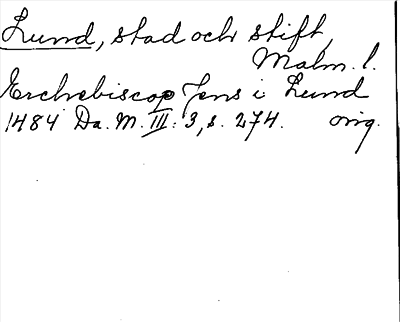 Lund, stad och stift,
Malm. l.
Erchebiscop Jens i Lund
1484 Da. M. III: 3, s. 274. orig.